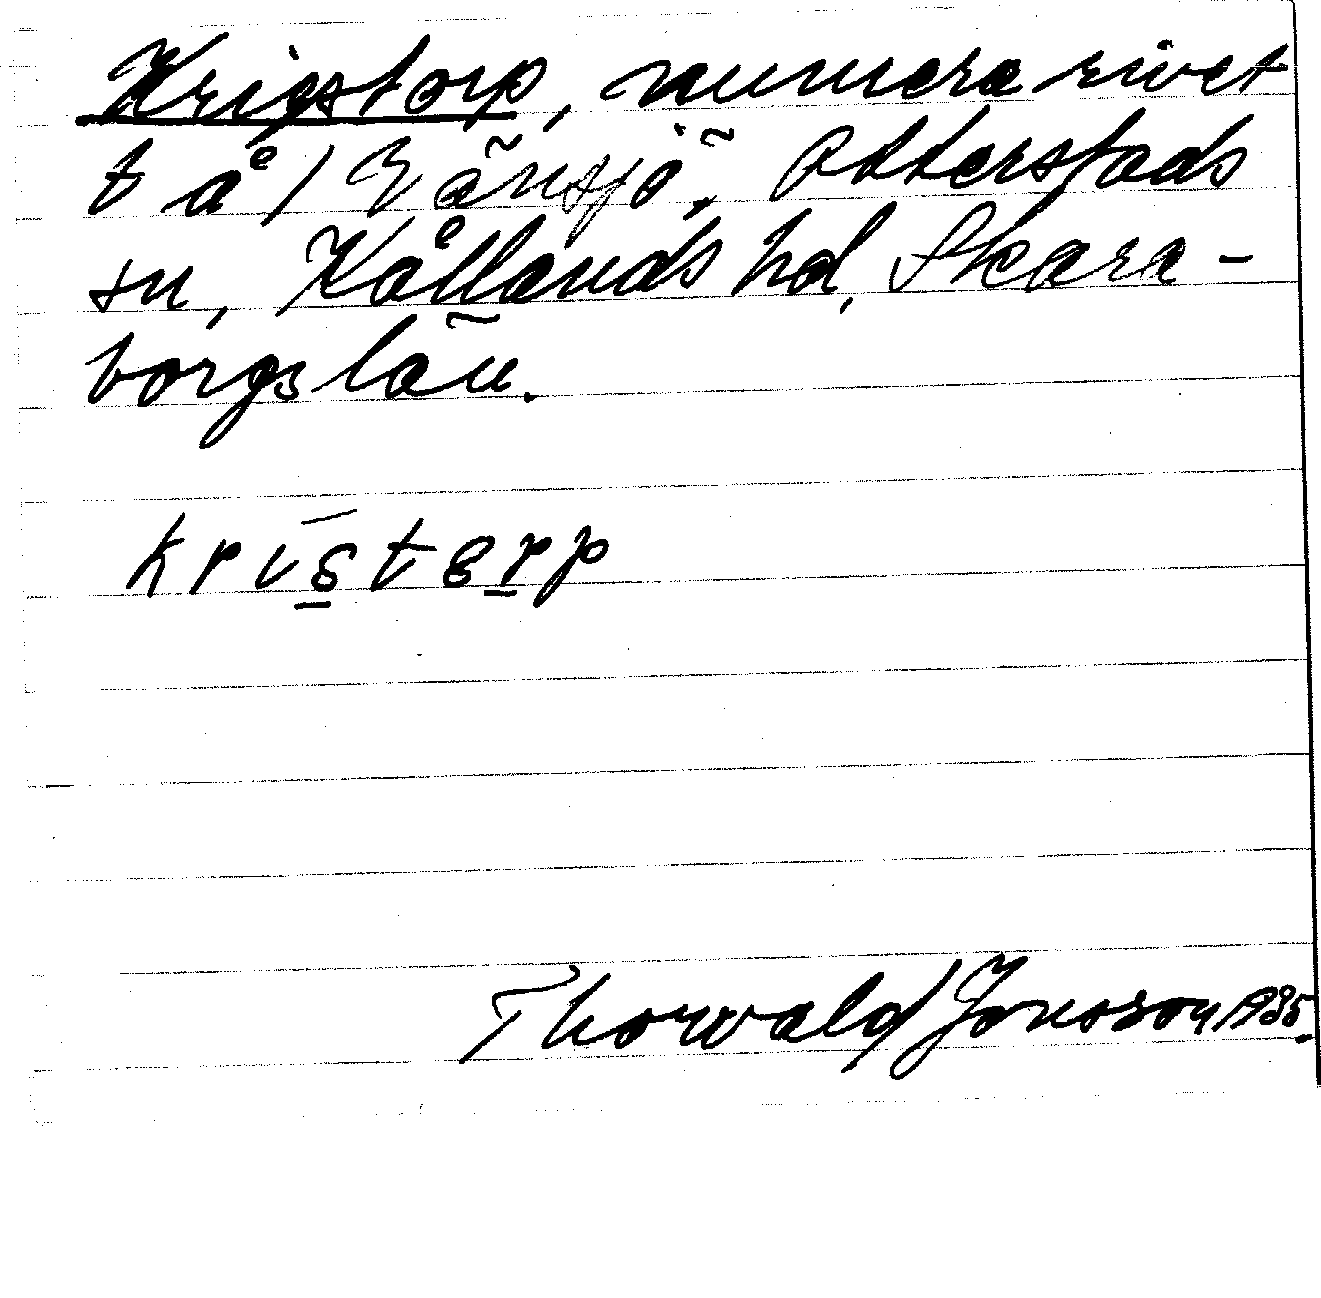 Krigstorp, numera rivet
t å/ Vänsjö, Otterstads
sn, Kållands hd, Skara-
borgs län.
kristorp
Thorwald Jonsson 1935.